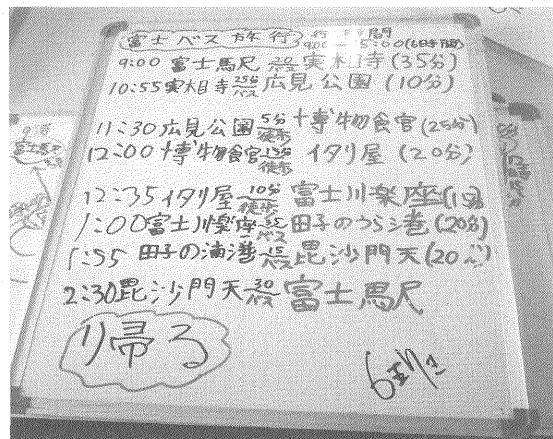 富士バス旅行
9:00 - 5:00(6時間)
9:00 富士馬尺 実相寺(35分)
10:55 実相寺 25分 バス 広見公園(10分)
11:30 広見公園 5分 徒歩 博物食官(25分)
12:00 博物食官 徒歩 イタリ屋(20分)
12:35 イタリ屋 10分 徒歩 富士川楽座
1:00 富士川楽座 35 バス 田子のうら港(20分)
1:55 田子の浦港 15 バス 毘沙門天(20分)
2:30 毘沙門天 30 バス 富士馬尺
帰る